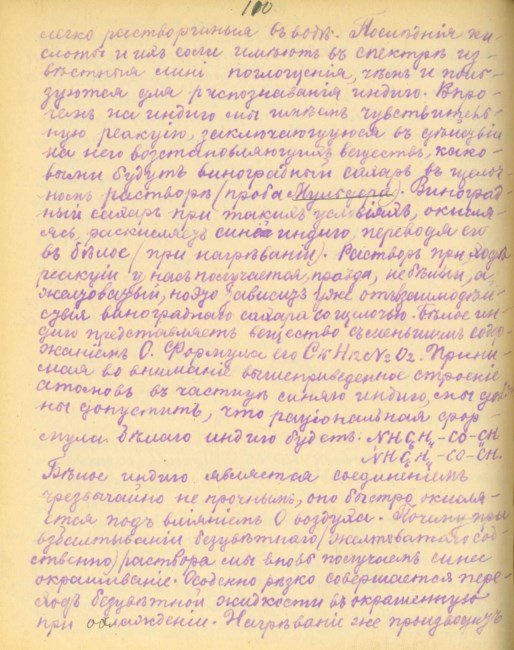 100
легко растворимыя въ водѣ. Послѣднія ки-
слоты и ихъ соли имѣютъ въ спектрѣ из-
вѣстныя линіи поглощенія, чѣмъ и поль-
зуются для распознаванія индиго. Впро-
чемъ на индиго мы имѣемъ чувствитель-
ную реакцію, заключающуюся въ дѣйствіи
на него возстановляющихъ веществъ, како-
выми будутъ виноградный сахаръ въ щелоч-
номъ растворѣ (проба Мульдера). Виноград-
ный сахаръ при такихъ условіяхъ, окисля-
ясь, раскисляетъ синее индиго, переводя его
въ бѣлое (при нагрѣваніи). Растворъ при этой
реакціи у насъ получается, правда, не бѣлый, а
желтоватый, но это зависитъ уже отъ взаимодѣй-
ствія винограднаго сахара со щелочью. Бѣлое ин-
диго представляетъ вещество съ меньшимъ содер-
жаніемъ O. Формула его C16H12N2O2. Прини-
мая во вниманіе вышеприведенное строеніе
атомовъ въ частицѣ синяго индиго, мы долж-
ны допустить, что раціональная фор-
мула бѣлаго индиго будетъ: NHC6H4-CO-CH
NHC6H4-CO-CH.
Бѣлое индиго является соединеніемъ
чрезвычайно не прочнымъ, оно быстро окисля-
ется подъ вліяніемъ O воздуха. Почему при
взбалтываніи безцвѣтнаго (желтоватаго соб-
ственно) раствора мы вновь получаемъ синее
окрашиваніе. Особенно рѣзко совершается пере-
ходъ безцвѣтной жидкости въ окрашенную
при охлажденіи. Нагрѣваніе же производитъ